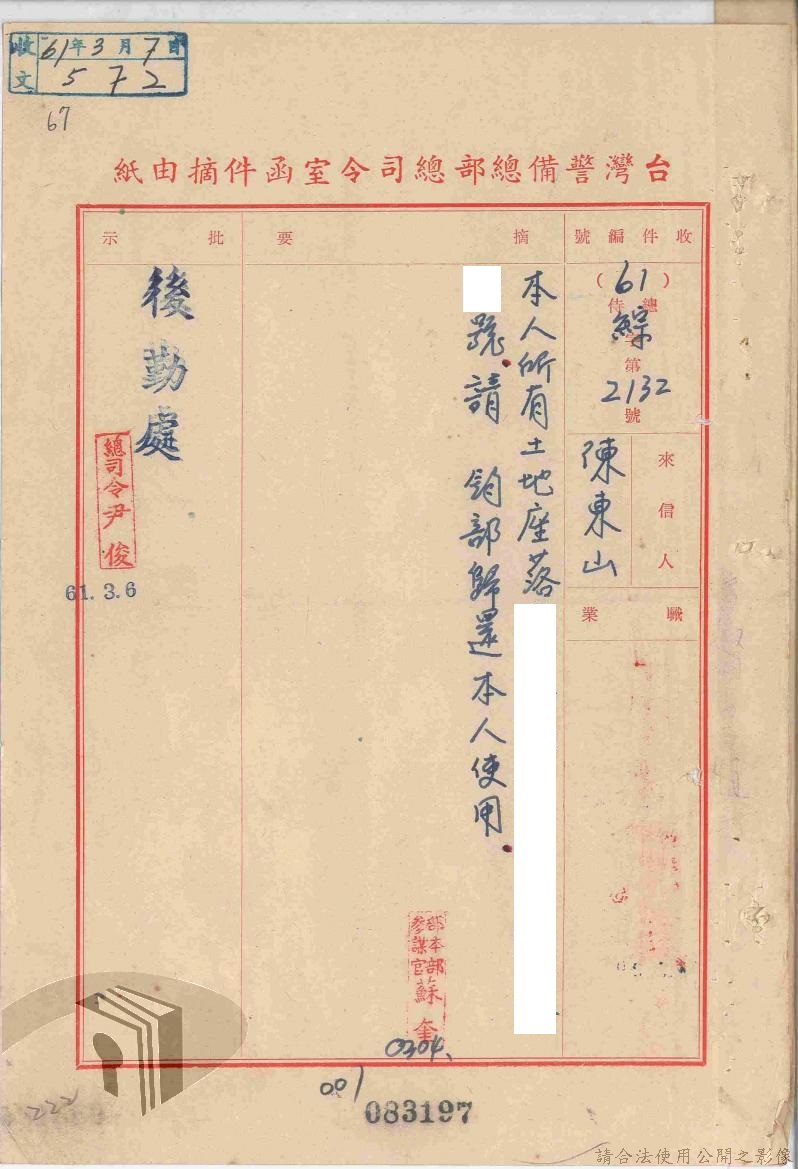 收文 61年3月7日
572
67
台灣警備總部總司令室函件摘由紙
收件編號
(61)總侍綜字第2132號
來信人
陳東山
職業
摘要
本人所有土地座落
號.請 鈞部歸還本人使用.
批示
後勤處
總司令尹俊
61.3.6
部本部參謀官蘇奎
0304、
001
083197
222
請合法使用公開之影像